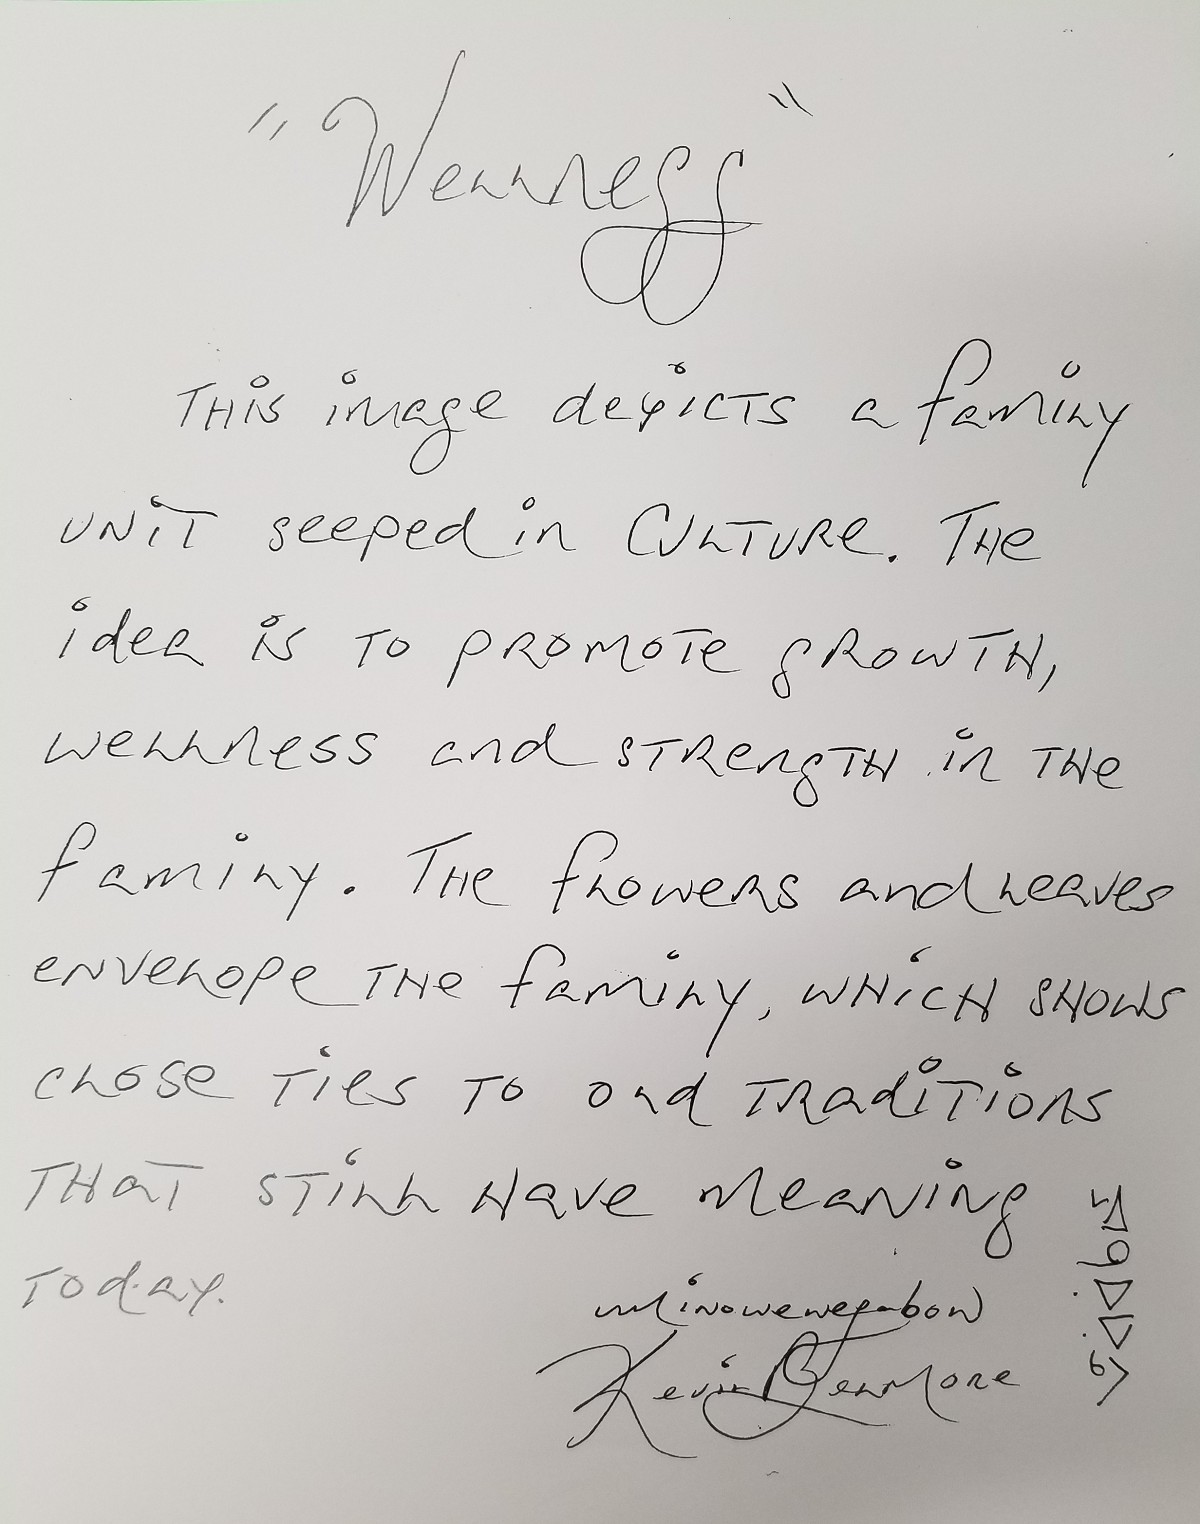 "Wellness"
This image depicts a family
unit seeped in Culture. The
idea is to promote growth,
wellness and strength in the
family. The flowers and leaves
envelope the family, which shows
close ties to old traditions
that still have meaning
today.
Minowewegabow
Kevin Belmore